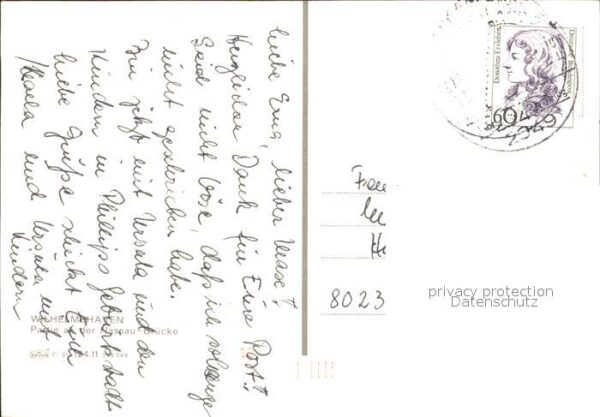 Liebe Erna, lieber Maxe!
Herzlichen Dank für Eure Post!
Seid nicht böse, daß ich solange
nicht geschrieben habe.
Bin jetzt mit Ursula und den
Kindern in Phillips Geburtsstadt
Liebe Grüße schickt Euch
und Ursula mit
Kindern
WILHELMSHAVEN
Partie an der Brücke
24.11
Dorothea Erxleben
Deutsche Bundespost
60
8023
privacy protection
Datenschutz